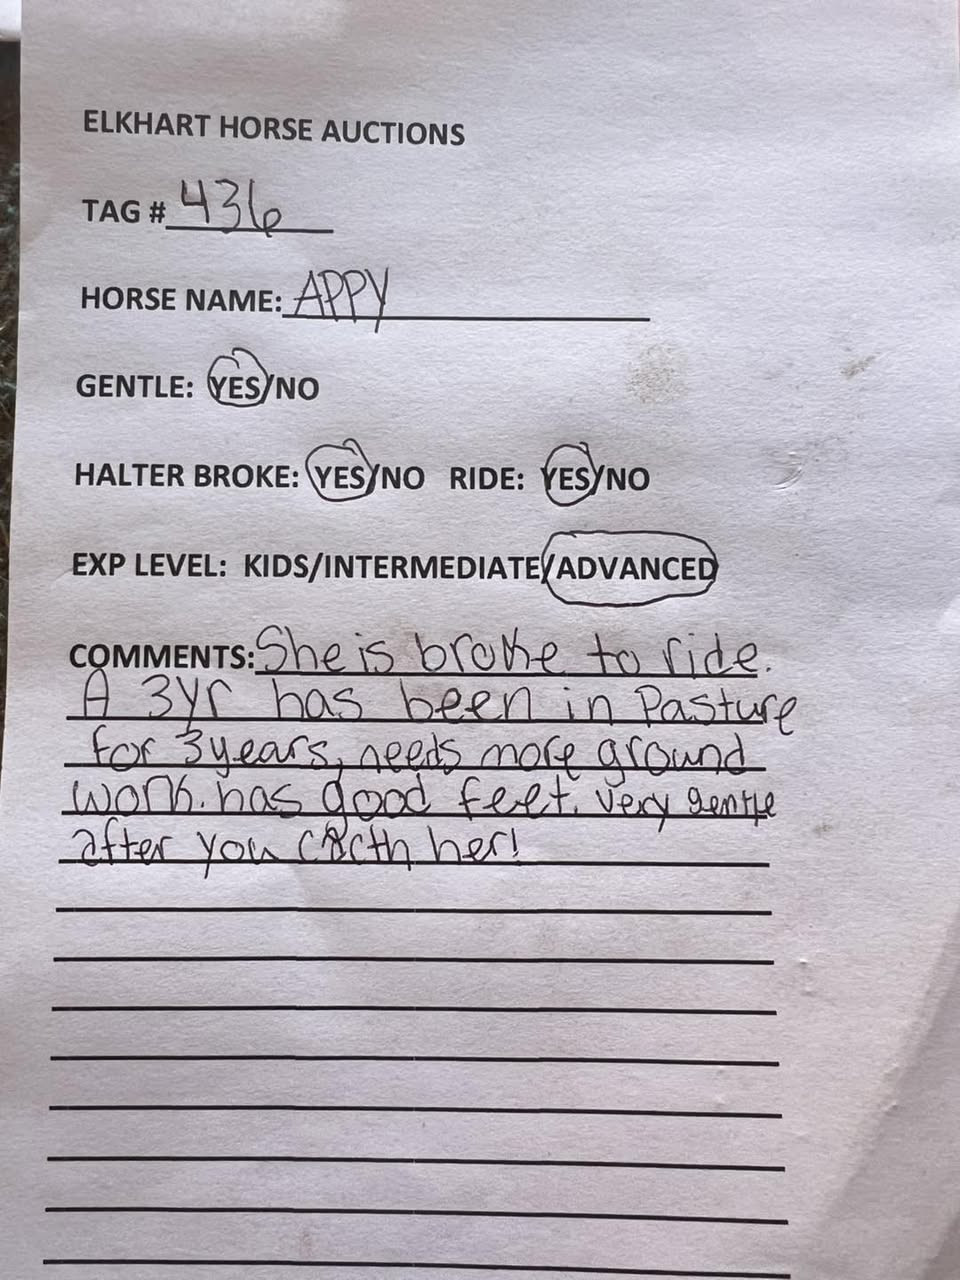 ELKHART HORSE AUCTIONS
TAG # 436
HORSE NAME: APPY
GENTLE: YES/NO
HALTER BROKE: YES/NO RIDE: YES/NO
EXP LEVEL: KIDS/INTERMEDIATE/ADVANCED
COMMENTS: She is broke to ride.
A 3yr has been in Pasture
for 3 years, needs more ground
work. has good feet. Very gentle
after you cacth her!